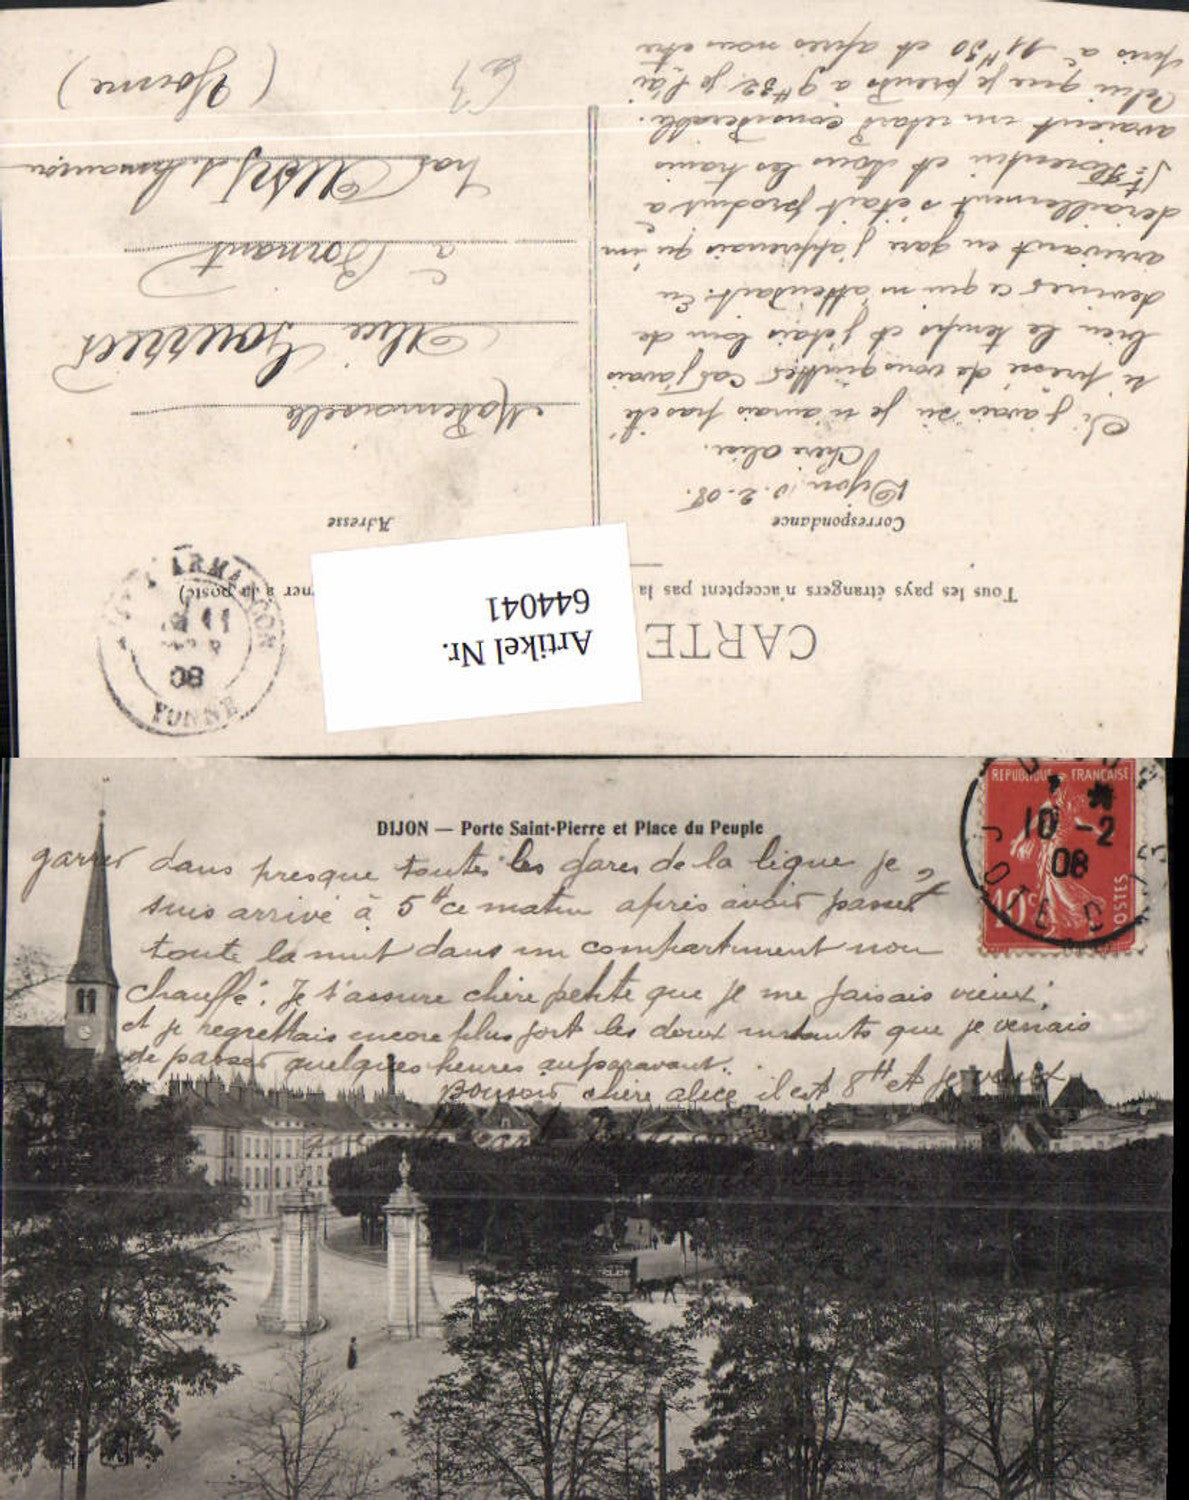 CARTE
Tous les pays étrangers n'acceptent pas la
ner à la poste)
Correspondance
Adresse
Artikel Nr.
644041
Dijon 10-2-08.
Chère Alice.
Si j'avais su je n'aurais pas été
si pressé de vous quitter car j'avais
bien le temps et j'étais loin de
deviner ce qui m'attendait. En
arrivant en gare j'apprenais qu'un
déraillement s'était produit à
St Florentin et tous les trains
avaient un retard considérable.
Celui que je prends à 9H32 je l'ai
pris à 11H30 et après nous être
Mademoiselle
Alice
à Bornant
Ancy
(Yonne)
63
ARMANÇON
11
08
YONNE
DIJON — Porte Saint-Pierre et Place du Peuple
REPUBLIQUE FRANÇAISE
10c
POSTES
10 -2
08
COTE D
garrer dans presque toutes les gares de la ligne je
suis arrivé à 5H ce matin après avoir passer
toute la nuit dans un compartiment non
chauffé. Je t'assure chère petite que je me faisais vieux.
et je regrettais encore plus fort les doux instants que je venais
de passer quelques heures auparavant.
Bonsoir chère alice il est 8H et je